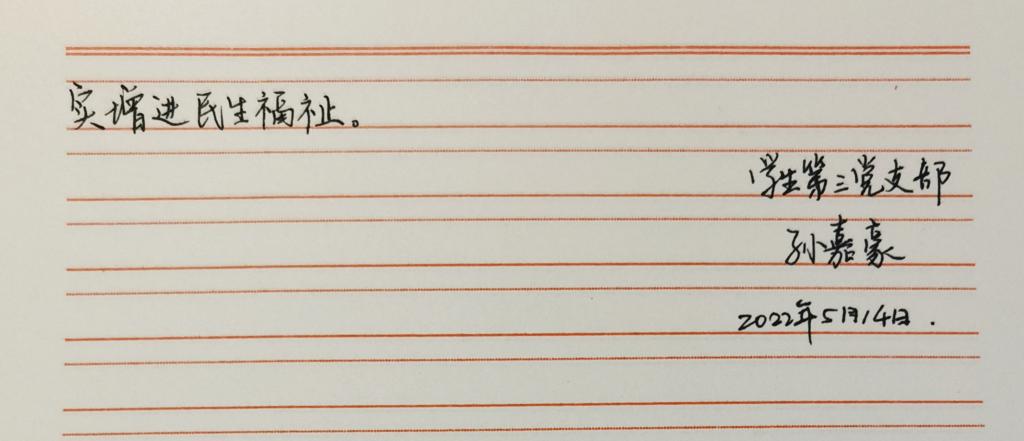 实增进民生福祉。
学生第三党支部
孙嘉豪
2022年5月14日.